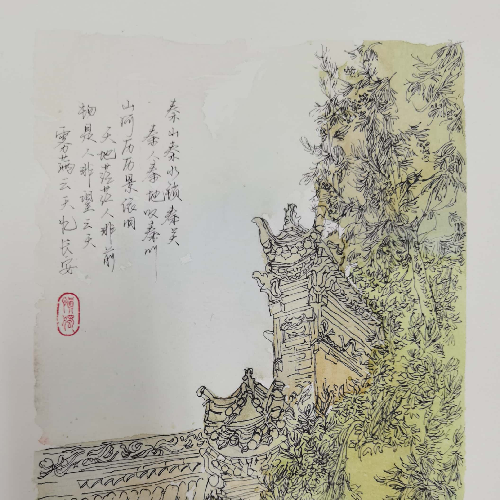 秦山秦水颂秦关
秦人秦地叹秦川
山河历历景依旧
天地茫茫人非前
物是人非望云天
雾满云天忆长安